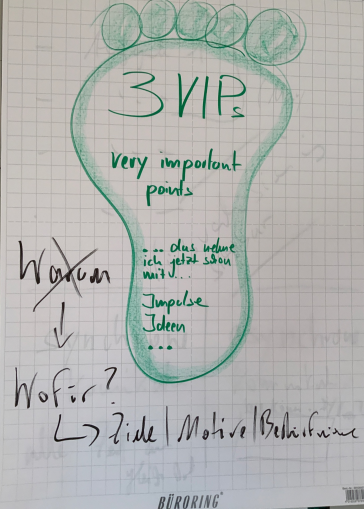 3 VIPs
very important
points
... das nehme
ich jetzt schon
mit...
Impulse
Ideen
...
Warum
Wofür?
Ziele | Motive | Bedürfnisse
BÜRORING